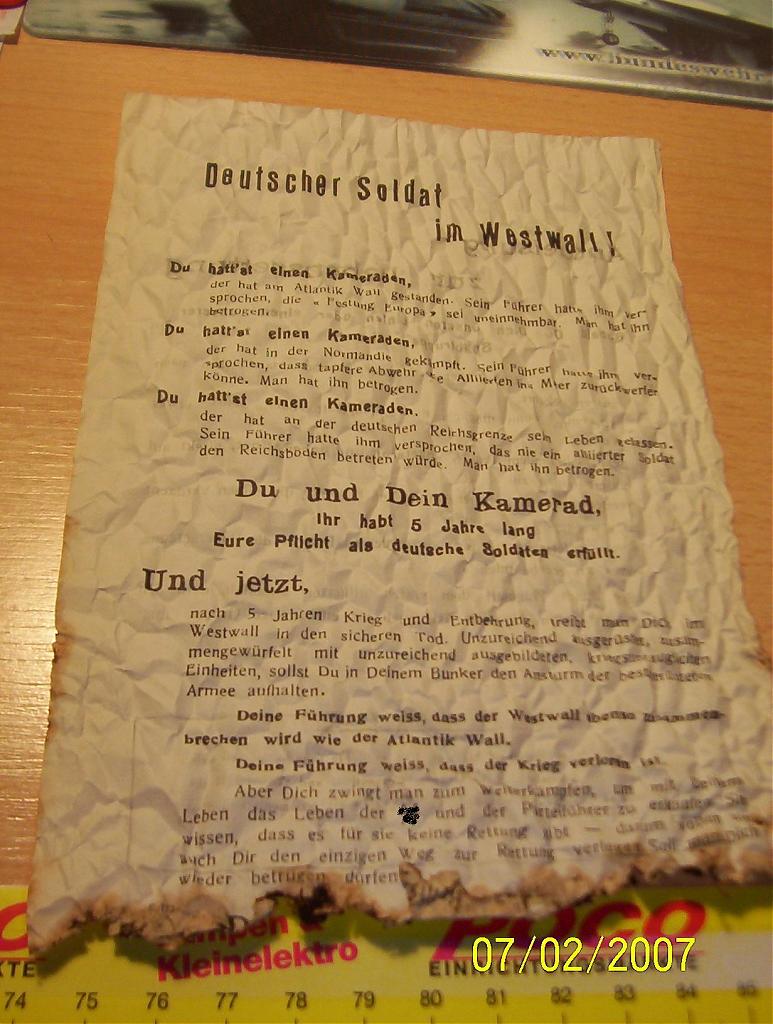 www.bundeswehr
Deutscher Soldat
im Westwall!
Du hatt'st einen Kameraden,
der hat am Atlantik Wall gestanden. Sein Führer hatte ihm ver-
sprochen, die « Festung Europa » sei uneinnehmbar. Man hat ihn
betrogen.
Du hatt'st einen Kameraden,
der hat in der Normandie gekämpft. Sein Führer hatte ihm ver-
sprochen, dass tapfere Abwehr die Alliierten ins Meer zurückwerfen
könne. Man hat ihn betrogen.
Du hatt'st einen Kameraden.
der hat an der deutschen Reichsgrenze sein Leben gelassen.
Sein Führer hatte ihm versprochen, das nie ein alliierter Soldat
den Reichsboden betreten würde. Man hat ihn betrogen.
Du und Dein Kamerad,
Ihr habt 5 Jahre lang
Eure Pflicht als deutsche Soldaten erfüllt.
Und jetzt,
nach 5 Jahren Krieg und Entbehrung, treibt man Dich im
Westwall in den sicheren Tod. Unzureichend ausgerüstet, zusam-
mengewürfelt mit unzureichend ausgebildeten, kriegsuntauglichen
Einheiten, sollst Du in Deinem Bunker den Ansturm der
Armee aufhalten.
Deine Führung weiss, dass der Westwall ebenso zusammen-
brechen wird wie der Atlantik Wall.
Deine Führung weiss, dass der Krieg verloren ist.
Aber Dich zwingt man zum Weiterkämpfen, um mit Deinem
Leben das Leben der und der Parteiführer zu
wissen, dass es für sie keine Rettung gibt — darum
auch Dir den einzigen Weg zur Rettung
wieder betrügen dürfen
Kleinelektro
POCO
KTE
EINRICHTUNGSMÄRKTE
07/02/2007
74 75 76 77 78 79 80 81 82 83 84 85